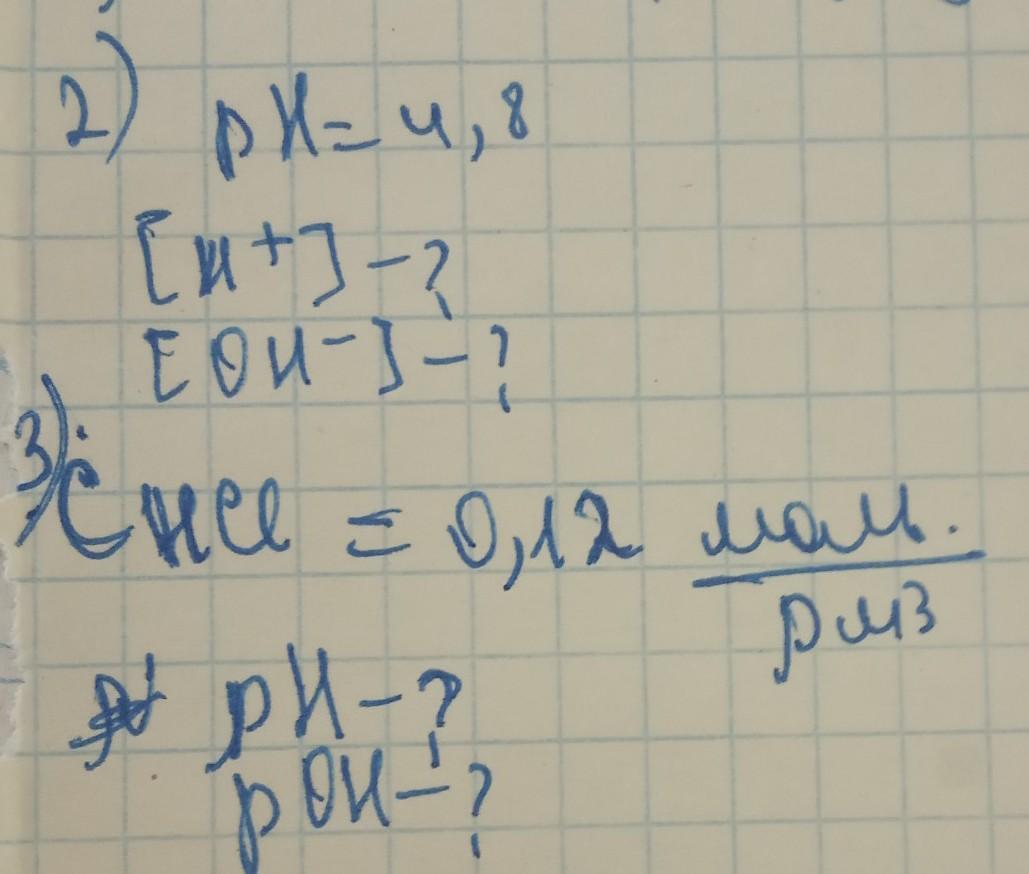 2) pH = 4,8
[H+] - ?
[OH-] - ?
3) C HCl = 0,12 моль
рм3
pH - ?
pOH - ?